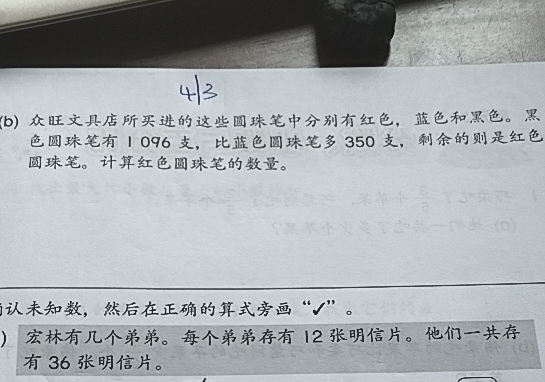 4/3
(b) 众旺文具店所买进的这些圆珠笔中分别有红色，蓝色和黑色。黑
色圆珠笔有 1 096 支，比蓝色圆珠笔多 350 支，剩余的则是红色
圆珠笔。计算红色圆珠笔的数量。
认未知数，然后在正确的算式旁画“✓”。
) 宏林有几个弟弟。每个弟弟存有 12 张明信片。他们一共存
有 36 张明信片。